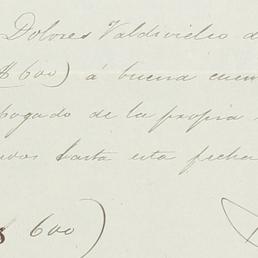 Dolores Valdivieso d
600) á buena cuen
ogado de la propia
hasta esta fecha
600)